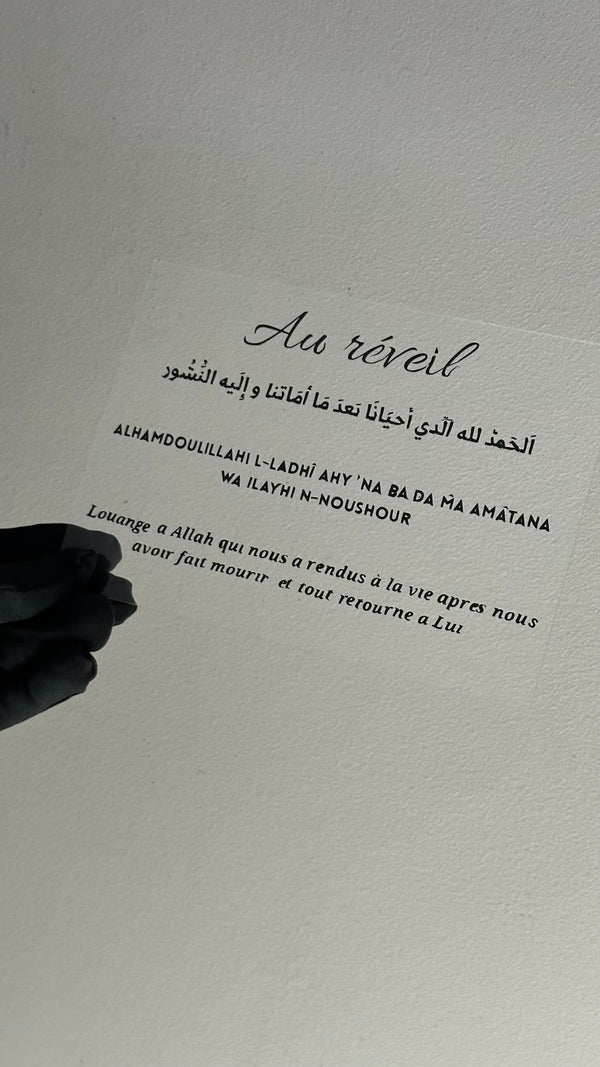 Au réveil
اَلحَمدُ لله الَّذي أحيَانَا بَعدَ مَا أمَاتنا و إلَيه النُّشُور
ALHAMDOULILLAHI L-LADHÎ AHY 'NA BA DA M̂A AMÂTANA
WA ILAYHI N-NOUSHOUR
Louange a Allah qui nous a rendus à la vie apres nous
avoir fait mourir et tout retourne a Lui